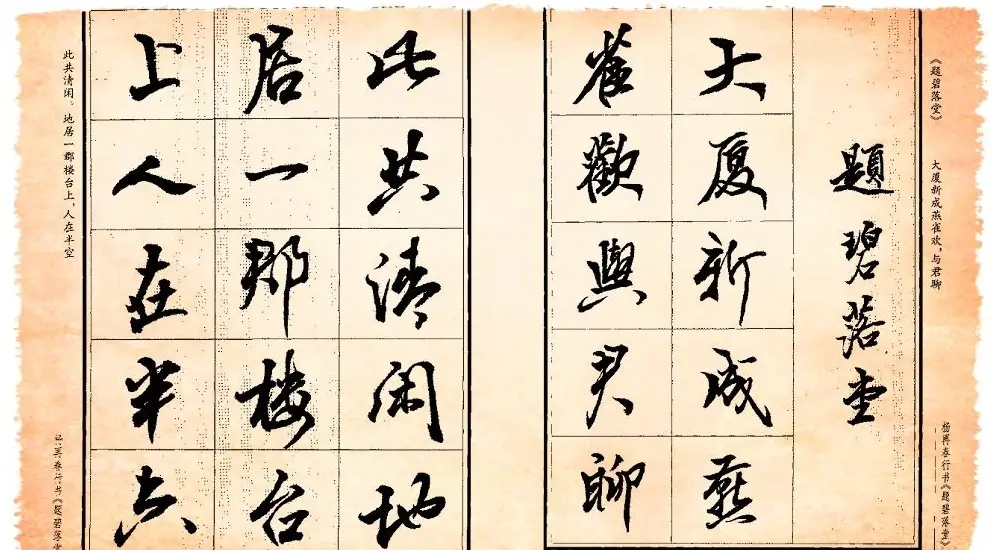 《题碧落堂》 大厦新成燕雀欢,与君聊
杨再春行书《题碧落堂》
題碧落堂
大厦新成燕
雀歡與君聊
此共清闲地
居一郡楼台
上人在半空
此共清闲。地居一郡楼台上,人在半空
春行书《题碧落堂